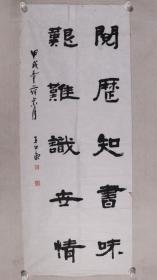 閱歷知書味
艱難識世情
甲戌年
月
王